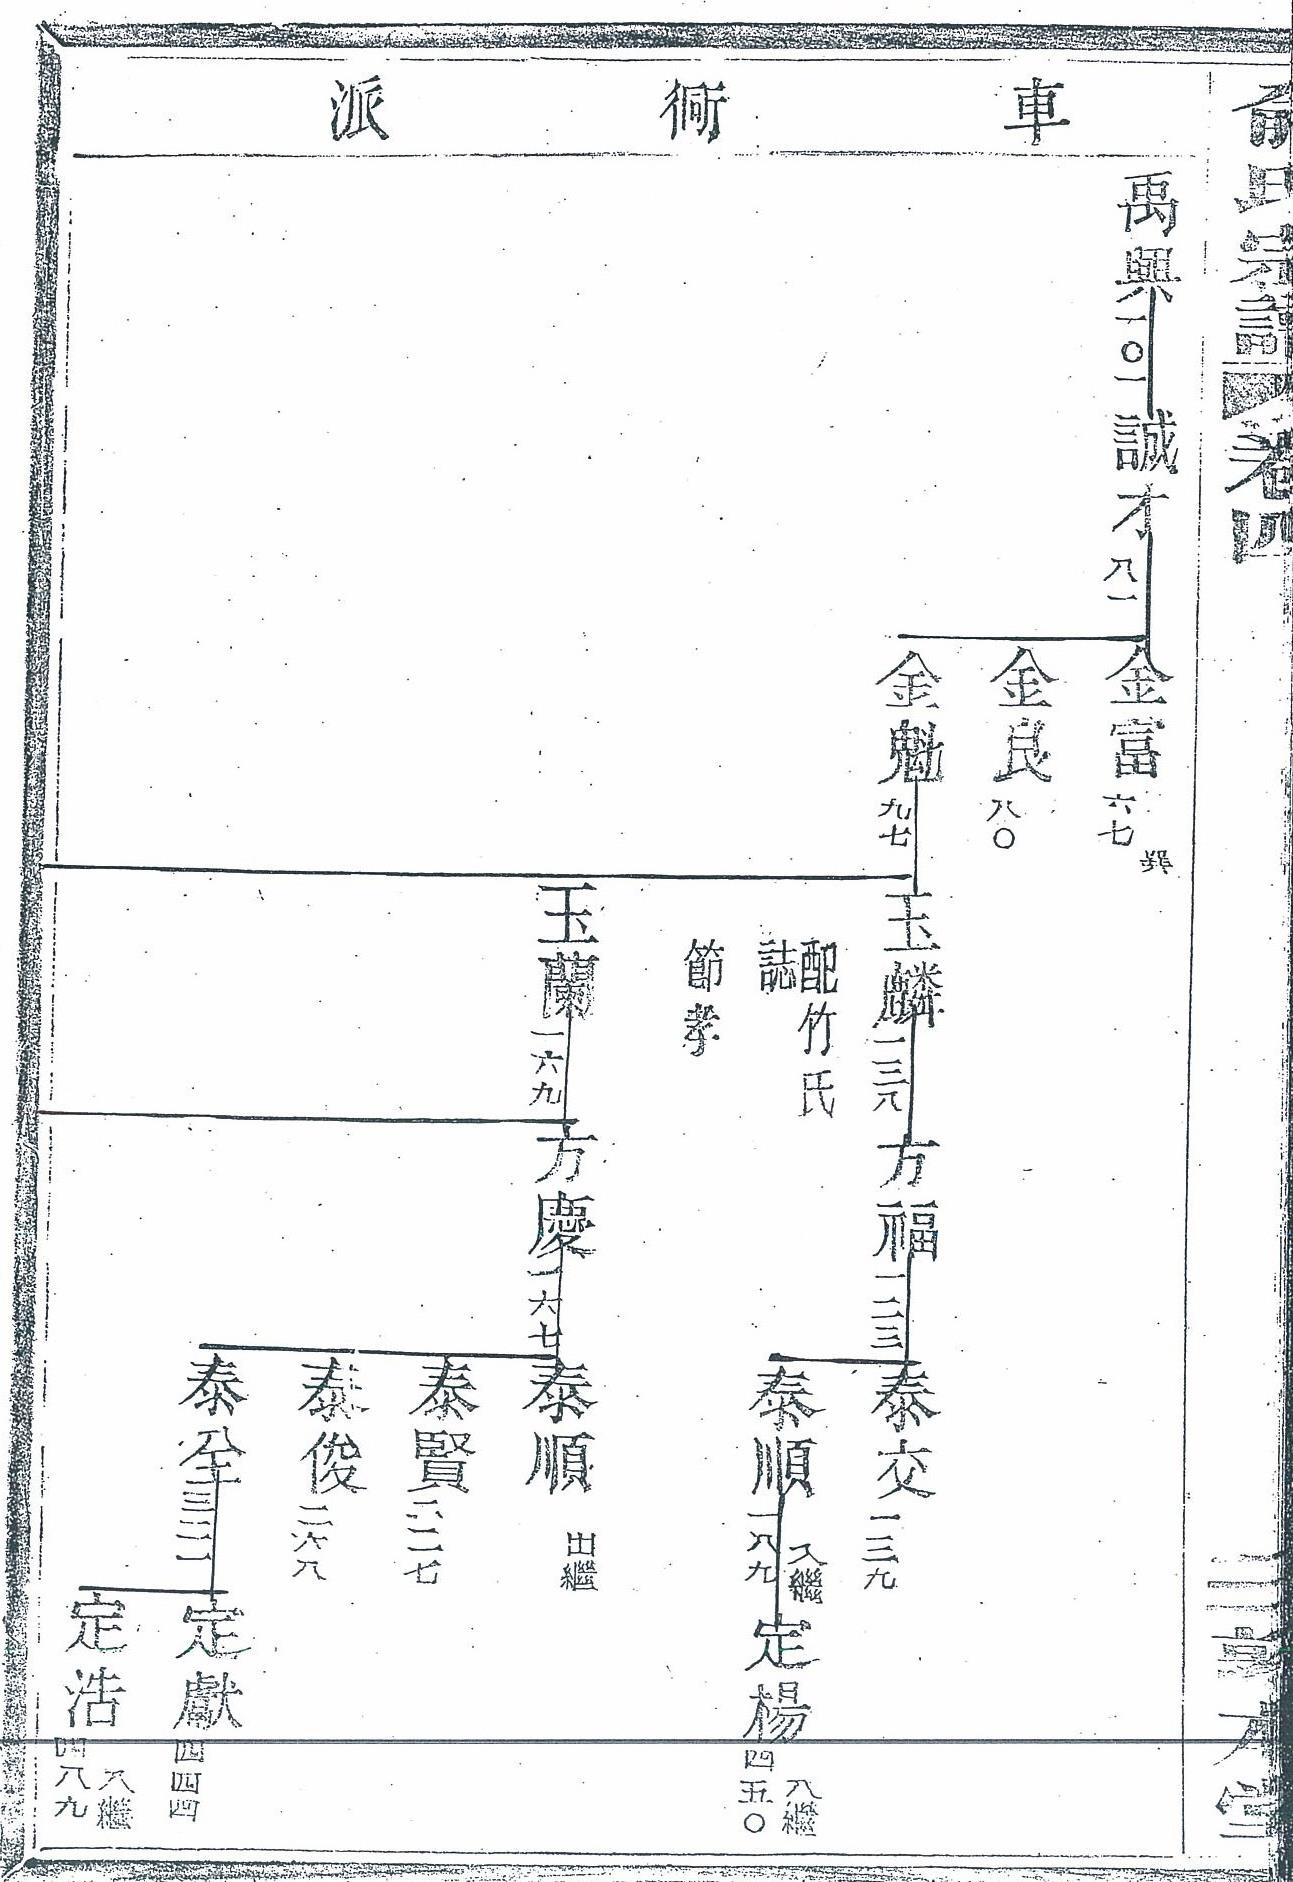 俞氏宗譜 卷四
車衕派
禹興 一〇一
誠才 八一
金富 六七
金良 八〇
金魁 九七
玉麟 一三八
配竹氏
誌
節孝
玉蘭 一六九
方福 一二三
方慶 一六七
泰交 一三九
泰順 一八九 入繼
泰順 出繼
泰賢 二二七
泰俊 二六八
泰全 三二一
定楊 四五〇 入繼
定獻 四四四
定浩 四八九 入繼